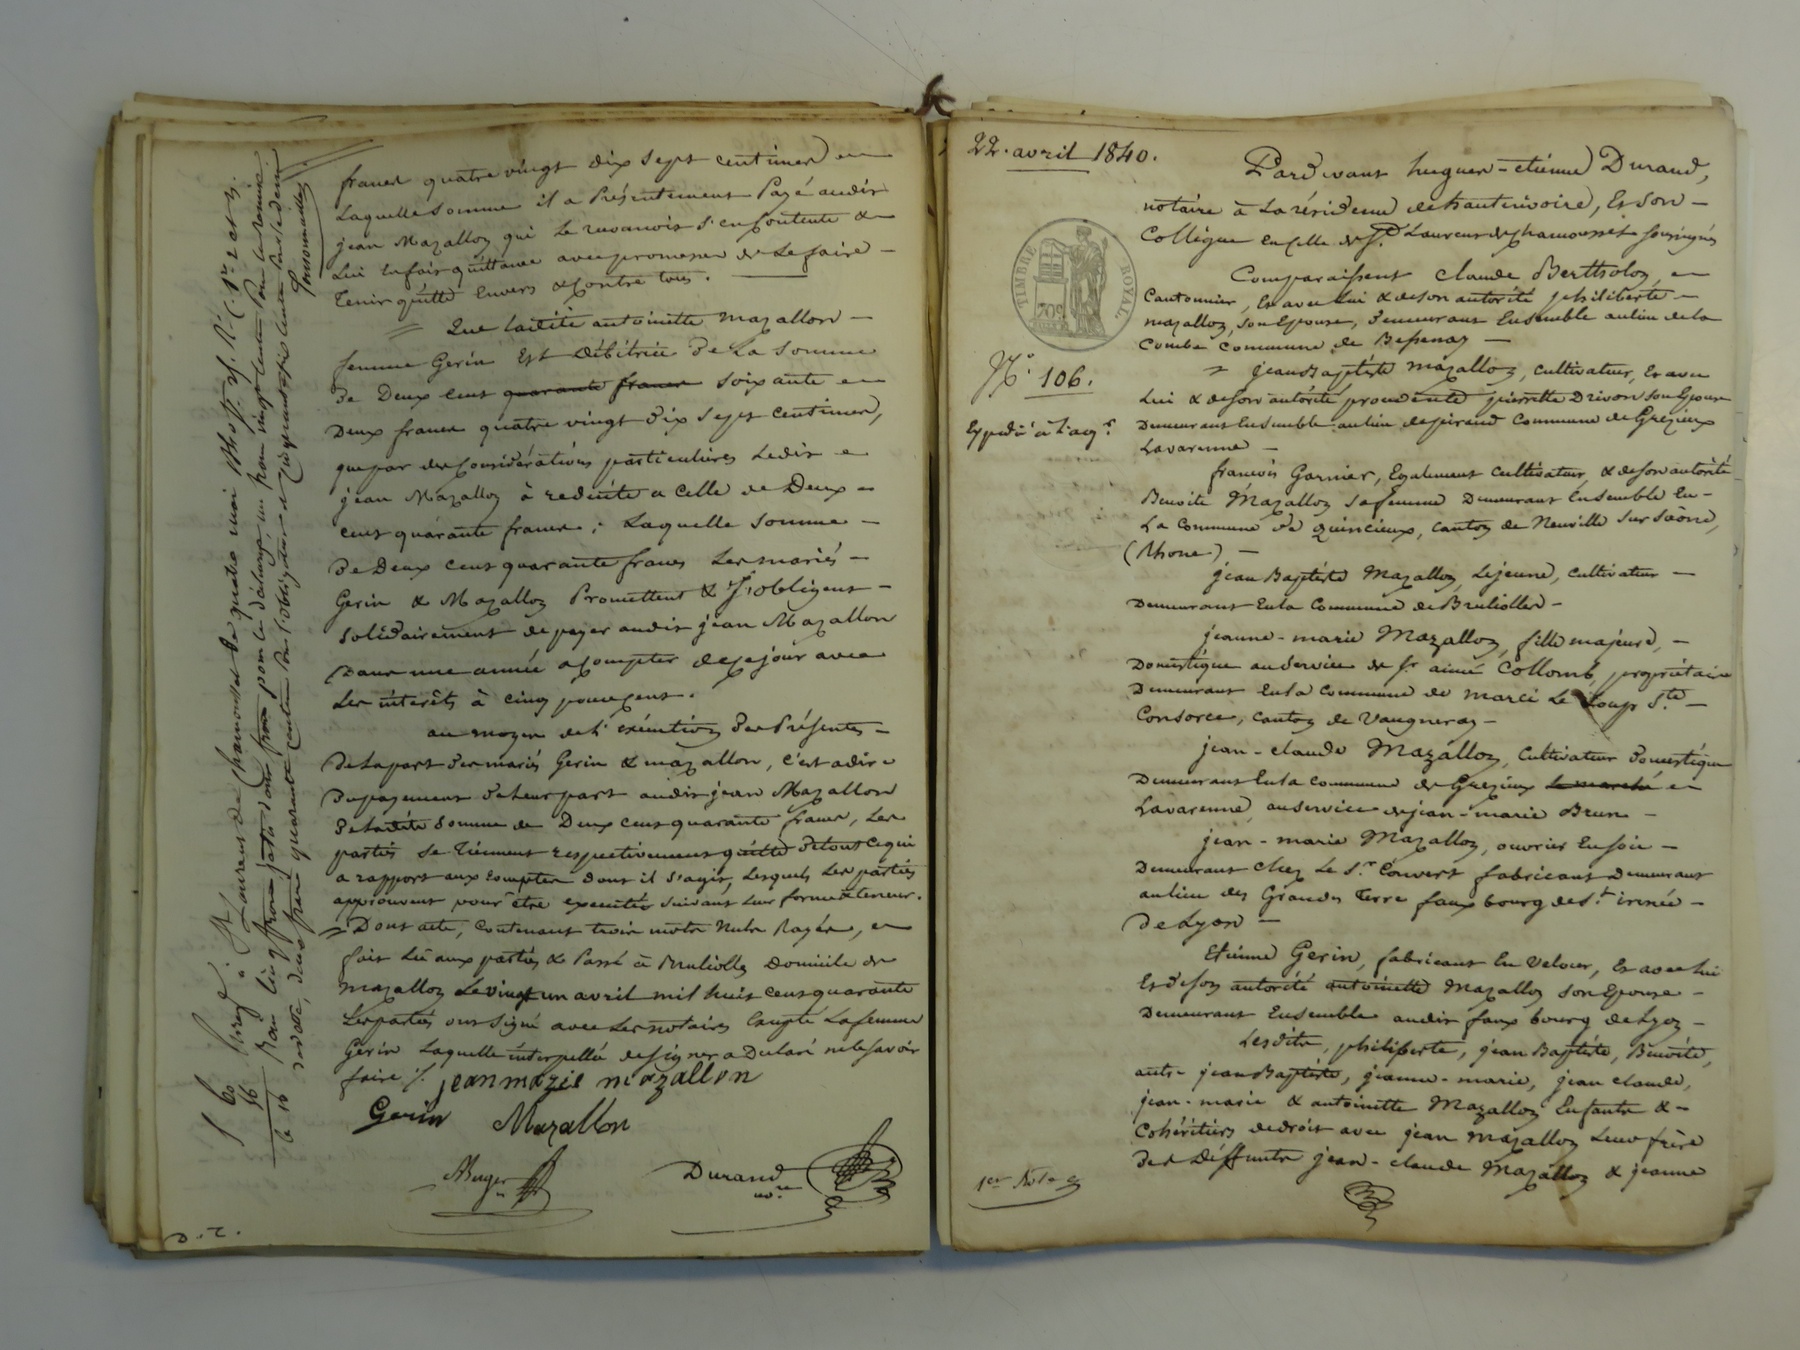 francs quatre vingt dix sept centimes en
Laquelle somme il a Présentement Payé audit
jean Mazallon qui Le reconnoit s'en Contente &
Lui En fait quittance avec promesse de Le faire
Tenir quitte Envers & Contre tous.
Que ladite antoinette Mazallon
femme Gerin Est débitrice de La Somme
de Deux cent quarante francs soixante
Deux francs quatre vingt dix sept centimes,
que par des Considérations particulières Ledit
jean Mazallon à reduite a Celle de Deux
cent quarante francs ; Laquelle somme
de Deux cent quarante francs Les mariés
Gerin & Mazallon Promettent & s'obligent
solidairement de payer audit jean Mazallon
Dans une année a Compter de ce jour avec
Les intérêts à cinq pour cent.
au moyen de L'exécution des Présentes
De la part des mariés Gerin & mazallon, c'est adire
du payement de Leur part audit jean Mazallon
de Ladite Somme de Deux cent quarante francs, Les
parties se Tiennent respectivement quitte de tout ce qui
a rapport aux Comptes dont il s'agit, Lesquels Les parties
approuvent pour être executés suivant Leur forme & teneur.
Dont acte, Contenant trois mots Nuls Rayés, en
fait Lû aux parties & Passé à Brulioles Domicile de
Mazallon Le vingt un avril mil huit cent quarante
Les parties ont Signé avec Les notaires Excepté La femme
Gerin Laquelle interpellée de signer a Déclaré ne le savoir
faire ./.
jean marie mazallon
Gerin Mazallon
Durand
nore
D. T.
22. avril 1840.
Pardevant hugues-etienne Durand,
notaire à La résidence de hauterivoire, Et Son
Collègue En Celle de St. Laurent de chamousset soussignés
Comparaissent claude Bertholon,
Cantonnier, Et avec Lui & de son autorité philiberte
mazallon, son Epouse, Demeurans Ensemble au lieu de La
Combe Commune de Bessenay
TIMBRE ROYAL
70c
No. 106.
Expédié à L'acqr.
jean Baptiste Mazallon, cultivateur, Et avec
Lui & de son autorité procedente pierrette Drivon son Epouse
Demeurant Ensemble au lieu de pirand Commune de Grézieux
Lavarenne
francois Garnier, Egalement Cultivateur, & de son autorité
Benoite Mazallon sa femme Demeurant Ensemble En
La Commune de Quincieux, canton de Neuville Sur Saône,
(Rhone)
jean Baptiste Mazallon, Lejeune, Cultivateur
Demeurant En la Commune de Brulioles
jeanne-marie Mazallon, fille majeure,
Domestique au Service de Sr. aimé Collomb, propriétaire
Demeurant En la Commune de Marci Le Loup Ste.
Consorce, canton de Vaugneray
jean-claude Mazallon, Cultivateur domestique
Demeurant En la Commune de Grezieux Le marché
Lavarenne, au service de jean-marie Brun
jean-marie Mazallon, ouvrier En soie
Demeurant Chez Le Sr. Couvert fabricant Demeurant
au lieu des Grandes Terre faux bourg de St. irénée
De Lyon
Etienne Gerin, fabricant En velour, Et avec Lui
Et de Son autorité antoinette Mazallon Son Epouse
Demeurant Ensemble audit faux bourg de Lyon
Lesdits, philiberte, jean Baptiste, Benoite,
autre jean Baptiste, jeanne-marie, jean claude,
jean-marie & antoinette Mazallon Enfants &
Cohéritiers de droit avec jean Mazallon Leur frère
des Déffunts jean-claude Mazallon & jeanne
1er Rôle